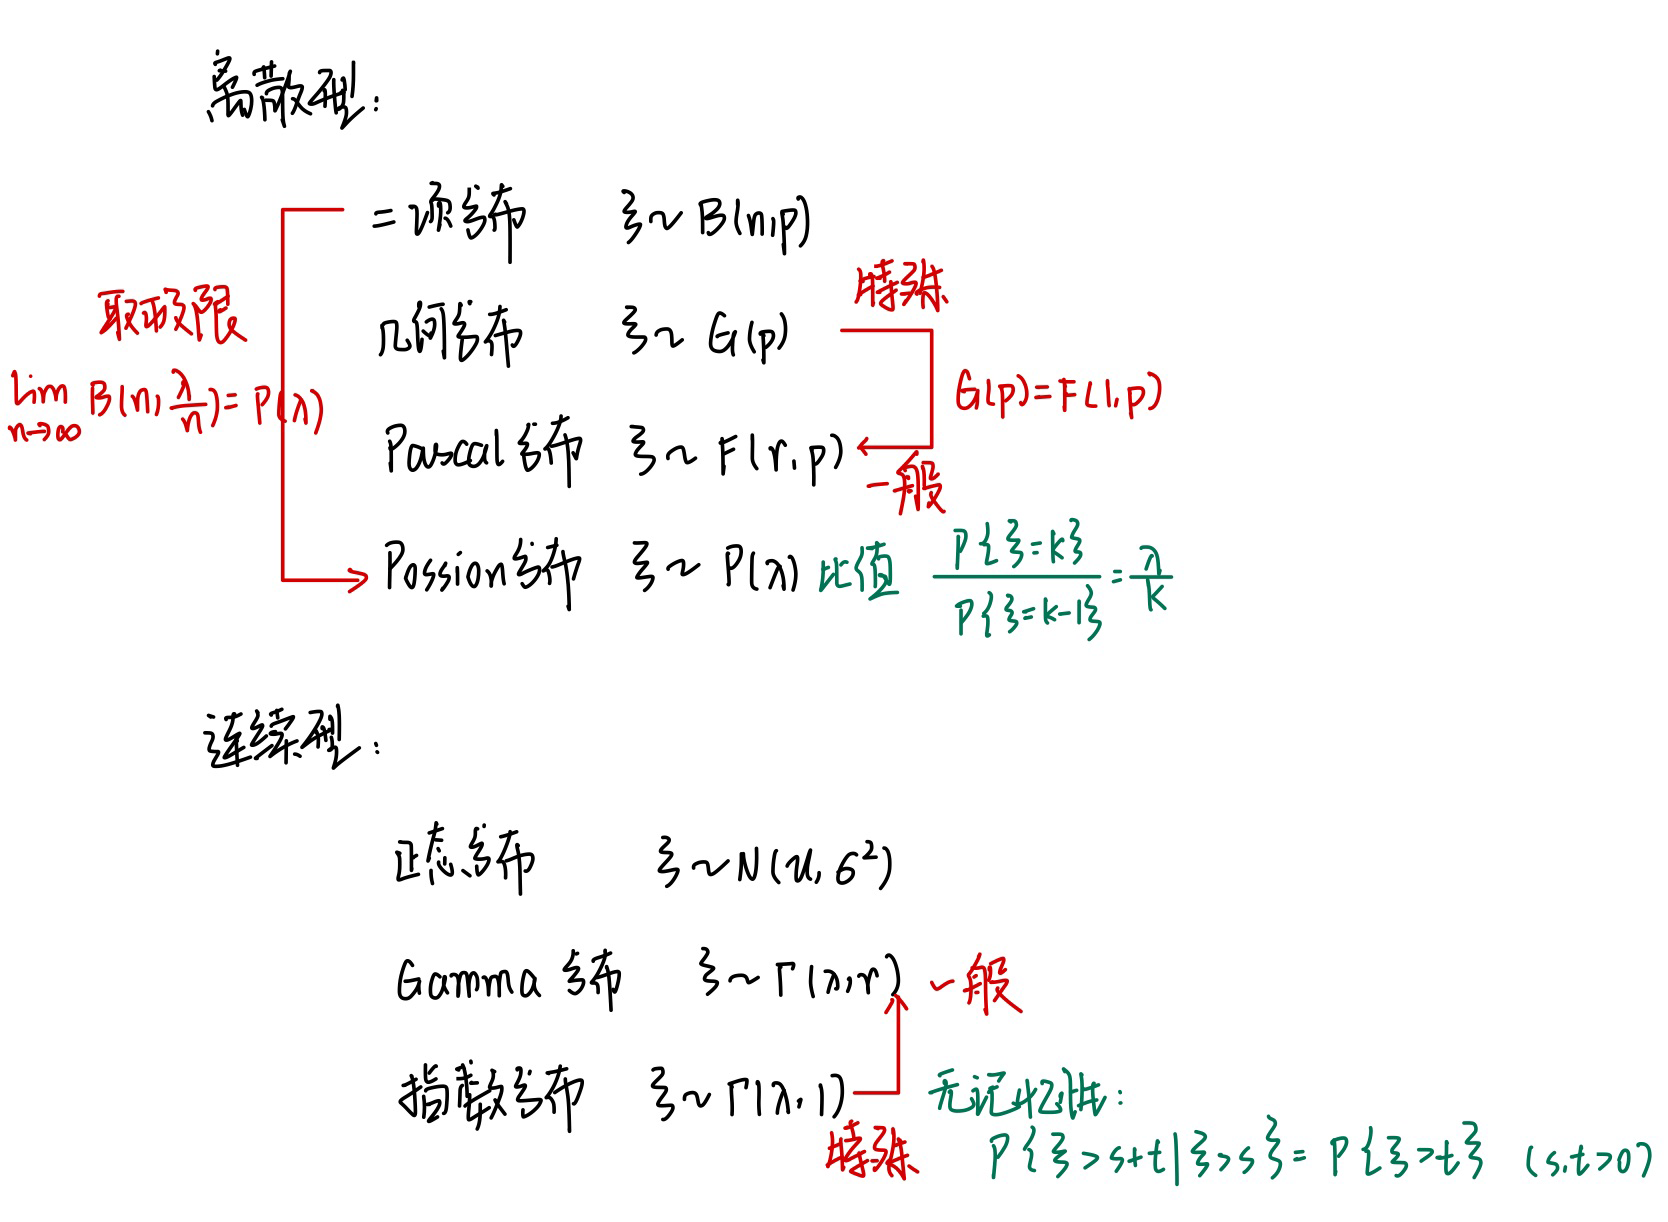 离散型：
二项分布 ξ~B(n,p)
特殊
取极限
几何分布 ξ~G(p)
lim n→∞ B(n,λ/n)=P(λ)
G(p)=F(1,p)
Pascal分布 ξ~F(r,p)
一般
Possion分布 ξ~P(λ) 比值 P{ξ=k}/P{ξ=k-1}=λ/k
连续型：
正态分布 ξ~N(u,σ²)
Gamma分布 ξ~Γ(λ,r) 一般
指数分布 ξ~Γ(λ,1) 无记忆性：
特殊 P{ξ>s+t|ξ>s}=P{ξ>t} (s,t>0)